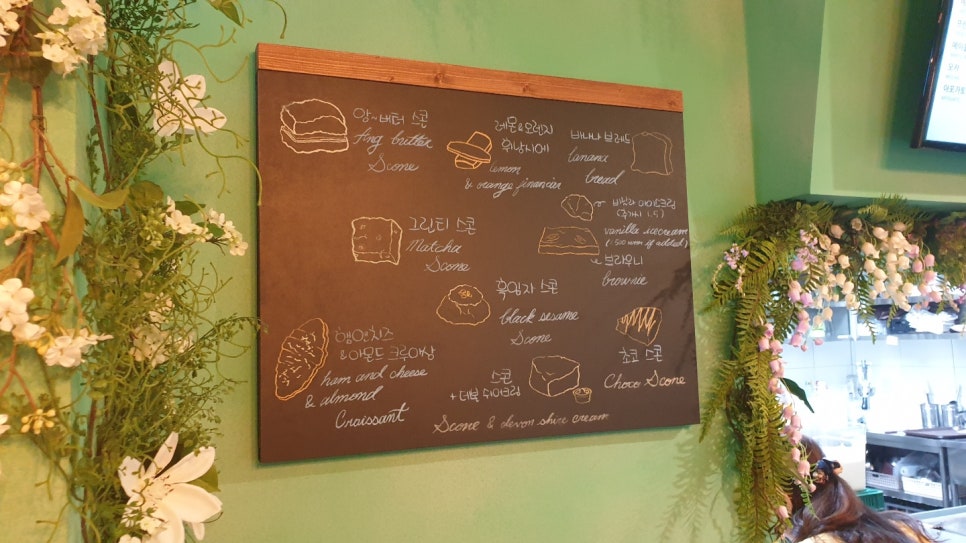 앙~버터 스콘
Ang butter
Scone
레몬&오렌지
휘낭시에
Lemon
& orange financier
바나나 브레드
banana
bread
그린티 스콘
Matcha
Scone
바닐라 아이스크림
(추가시 1.5)
vanilla icecream
(1500 won if added)
브라우니
brownie
흑임자 스콘
black sesame
Scone
햄앤치즈
&아몬드 크루아상
ham and cheese
& almond
Croissant
초코 스콘
Choco Scone
스콘
+데본 쉬어크림
Scone & devon shire cream